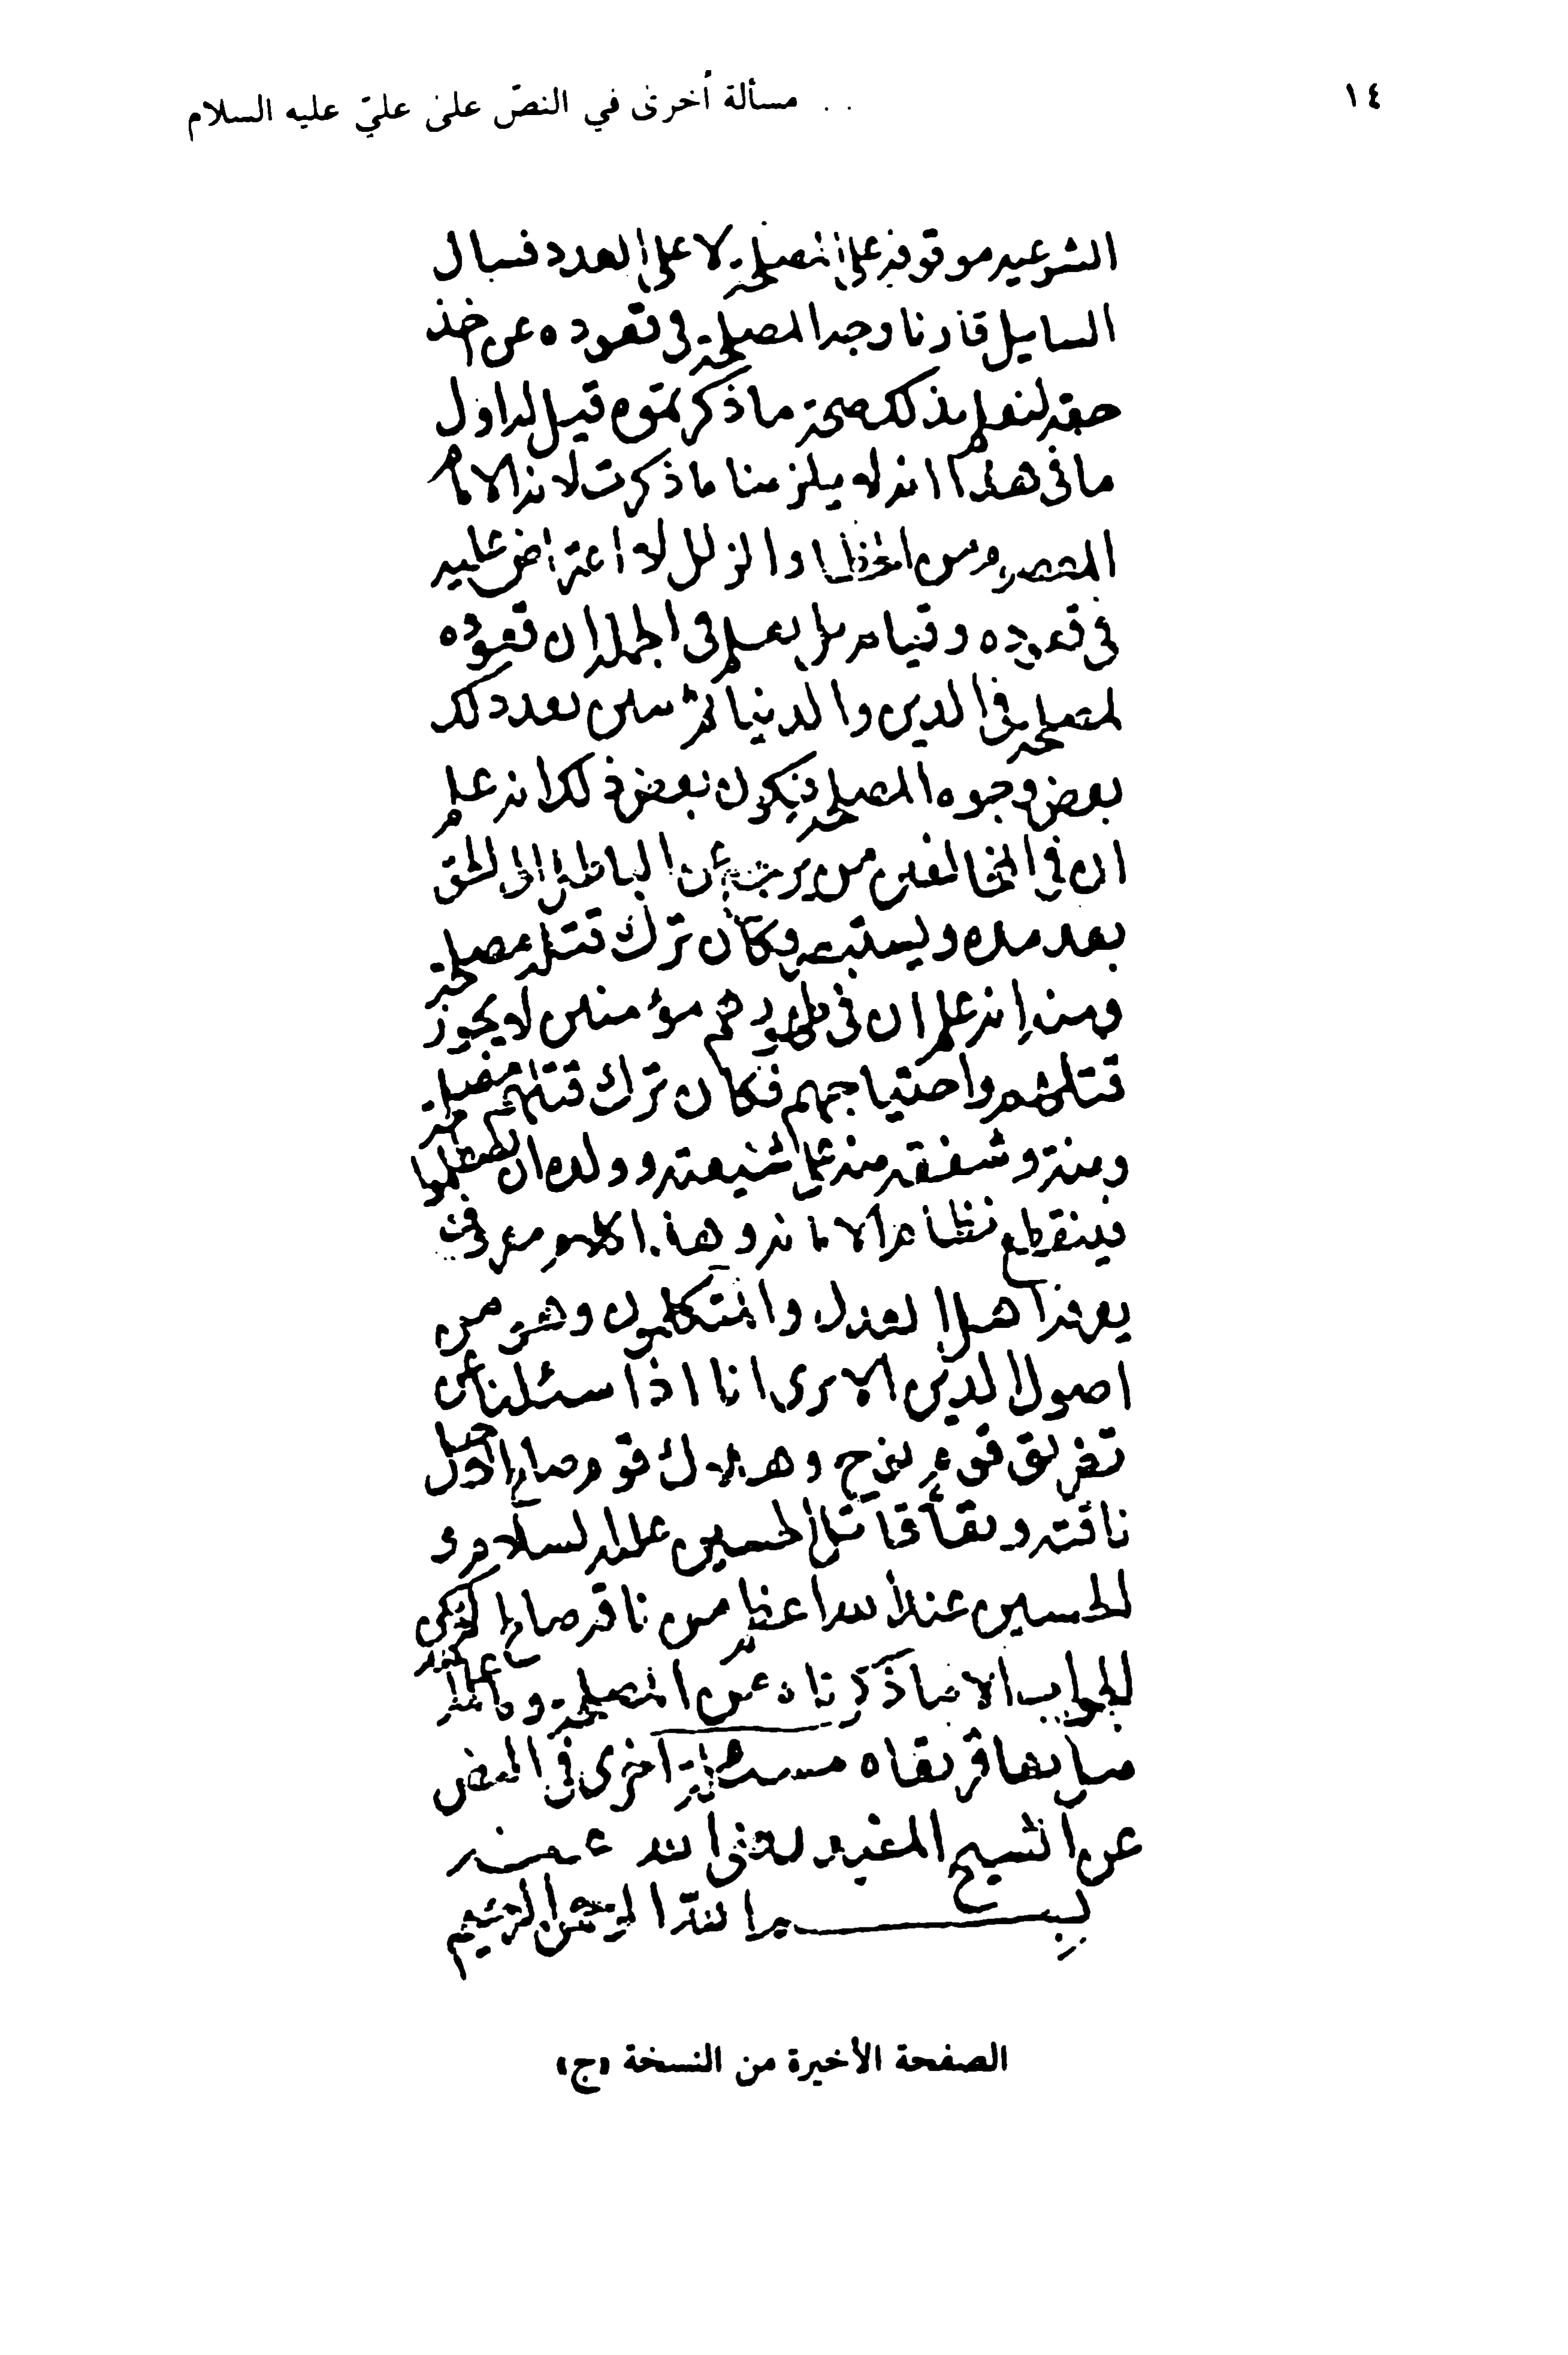 ١٤
مسألة أخرى في النصّ على عليّ عليه السلام . .
الشرعيه موقوفه على المصلحه لا على العدد فسال
السايل فارنا وجه المصلحة في قعوده عن اخذ
حقه لنعلم بذلك صحة ما ذكرتموه قيل له اول
ما في هذا انه لا يلزمنا ما ذكرت لان الامام
المعصوم من الخطا والزلل لا اعتراض عليه
في قعوده وقيامه بل يعلم في الجمله ان قعوده
لمصلحة في الدين والدنيا ثم نبين بعد ذلك
بعض وجوه المصلحه فيكون بعض ذلك انه علم
ان في المخالفين من يرجع عن الباطل الى الحق
بعد مده ويستبصر فكان ترك قتله مصلحة
ومنه انه علم ان في ظهورهم مؤمنين لا يجوز
قتلهم واجتياحهم فكان ترك قتلهم مصلحة
ومنه شفقة منه على شيعته وولده ان يصطلموا
فينقطع نظام الامامة وهذا كلام معروف
يعرفه اهل العدل والمتكلمون وهو من
اصول الدين الا ترى انا اذا سئلنا عن
تغريق قوم نوح وهلاك قوم صالح لاجل
ناقته وبقا قاتل الحسين عليه السلام و
الحسين عند الله اعظم من ناقة صالح لم يكن
الجواب الا ما ذكرناه من المصلحة وما علمه
من بقا من بقاه مسئلة اخرى في النص
عن الشيخ المفيد رضى الله عنه
بسم الله الرحمن الرحيم
الصفحة الأخيرة من النسخة «ج»